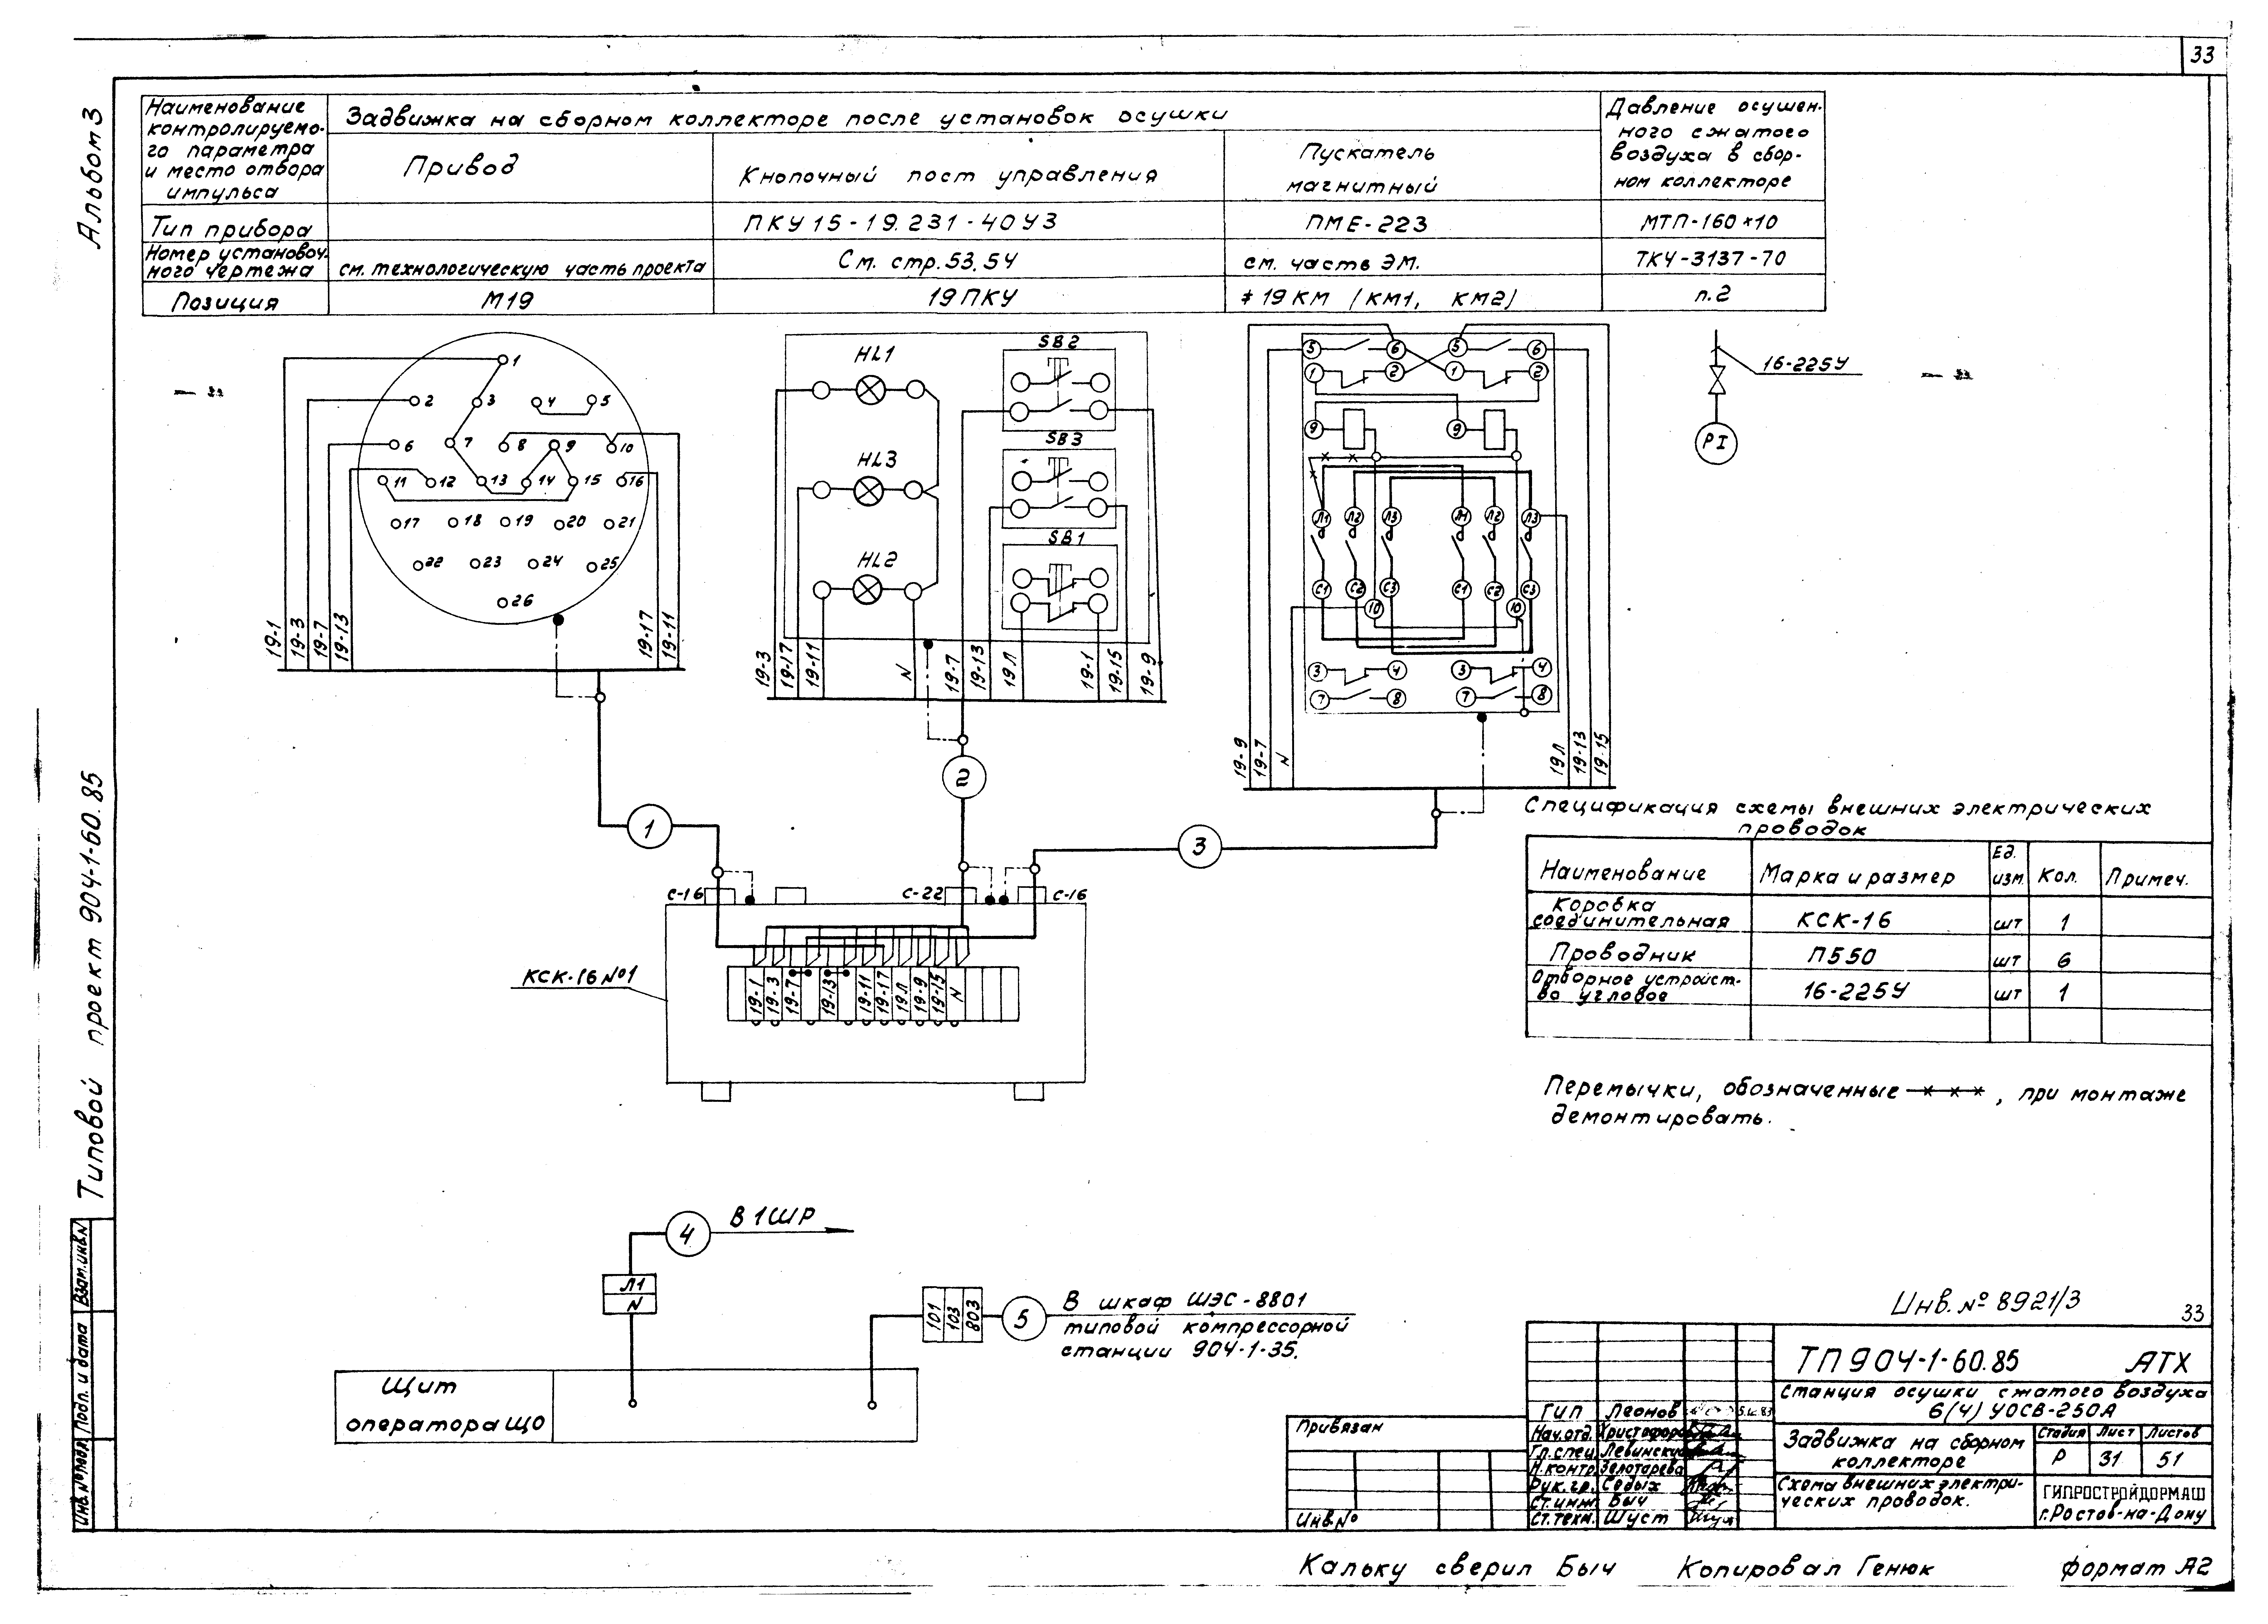 33
Альбом 3
Типовой проект 904-1-60.85
Наименование
контролируемо-
го параметра
и место отбора
импульса
Задвижка на сборном коллекторе после установок осушки
Привод
Кнопочный пост управления
Пускатель
магнитный
Давление осушен-
ного сжатого
воздуха в сбор-
ном коллекторе
Тип прибора
ПКУ 15-19.231-40У3
ПМЕ-223
МТП-160×10
Номер установоч-
ного чертежа
см. технологическую часть проекта
См. стр. 53, 54
см. часть ЭМ.
ТК4-3137-70
Позиция
М19
19ПКУ
19КМ (КМ1, КМ2)
п.2
1
2 3 4 5
6 7 8 9 10
11 12 13 14 15 16
17 18 19 20 21
22 23 24 25
26
19-1 19-3 19-7 19-13 19-17 19-11
HL1
HL3
HL2
SB2
SB3
SB1
19-3 19-17 19-11 N 19-7 19-13 19Л 19-1 19-15 19-9
5 6 5 6
1 2 1 2
9 9
Л1 Л2 Л3 Л1 Л2 Л3
С1 С2 С3 С1 С2 С3
10 10
3 4 3 4
7 8 7 8
19-9 19-7 N 19Л 19-13 19-15
16-225У
PI
1
2
3
С-16 С-22 С-16
КСК-16 №1
19-1 19-3 19-7 19-13 19-11 19-17 19Л 19-9 19-15 N
Спецификация схемы внешних электрических
проводок
Наименование Марка и размер Ед. изм. Кол. Примеч.
Коробка
соединительная КСК-16 шт 1
Проводник П550 шт 6
Отборное устройст-
во угловое 16-225У шт 1
Перемычки, обозначенные ×××, при монтаже
демонтировать.
4
В 1ШР
Л1
N
101 103 803
5
В шкаф ШЭС-8801
типовой компрессорной
станции 904-1-35.
Щит
оператора ЩО
Взам. инв. №
Подп. и дата
Инв. № подл.
Инв. № 8921/3
33
ТП 904-1-60.85 АТХ
Станция осушки сжатого воздуха
6(4) УОСВ-250А
ГИП Леонов
Нач. отд. Христофоров
Гл. спец. Левинский
Н. контр. Золотарева
Рук. гр. Седых
Ст. инж. Быч
Ст. техн. Шуст
Задвижка на сборном
коллекторе
Стадия Лист Листов
Р 31 51
Схема внешних электри-
ческих проводок.
ГИПРОСТРОЙДОРМАШ
г. Ростов-на-Дону
Привязан
Инв. №
Кальку сверил Быч Копировал Генюк формат А2